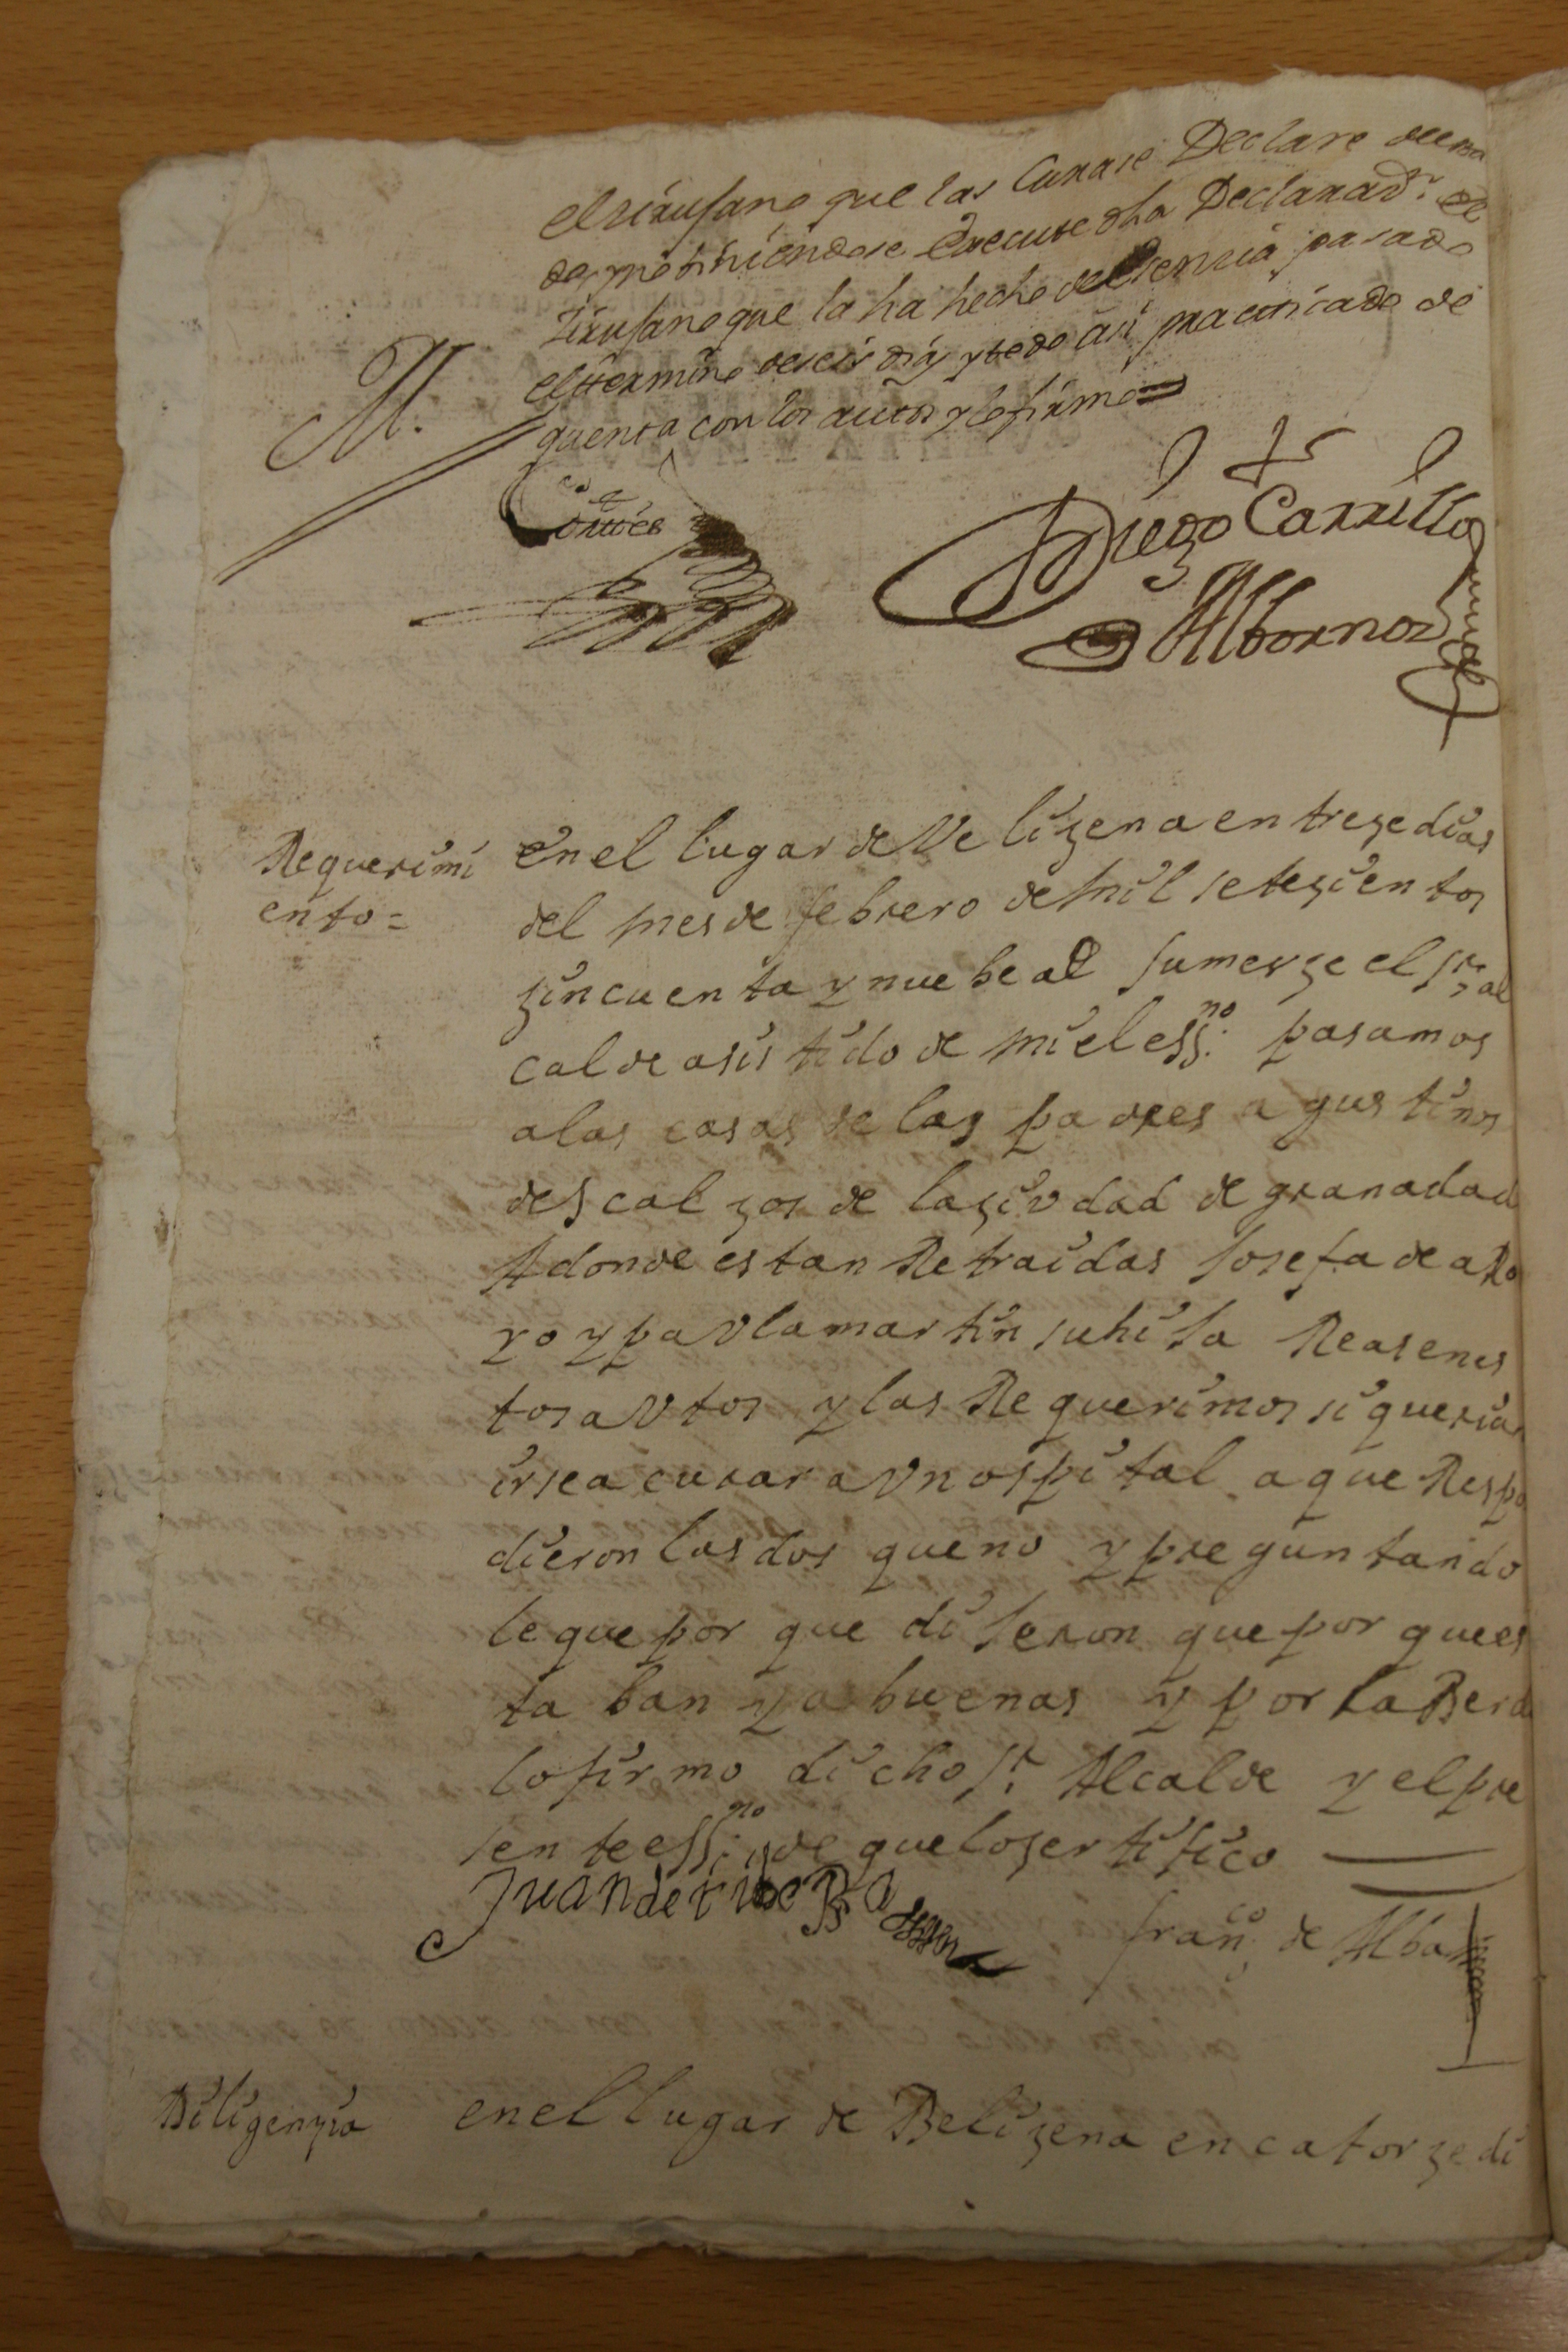 el zirujano que las Curase Declare
de, no biniendose Execute dha Declarazn. el
Zirujano que la ha hecho de Esenzia pasado
el termino de seis dias y todo asi practicado de
quenta con los autos y lo firmo =
M.
Cortes
Diego Carrillo
Albornoz
Requerimi
ento =
en el lugar de Velizena en treze dias
del mes de febrero de mil seteziento​s
zincuenta y nuebe a​l sumerze el sr. al
calde asistido de mi el essno. pasamos
a las casas de las padres agustinos
descalzos de la ziudad de granada
Adonde estan Retraidas Josefa de aRo
yo y pavla martin su hija Reas en es
tos avtos y las Requerimos si querian
irse a curar a vn ospital a que Respo
dieron las dos que no y preguntando
le que por que dijeron que por que es
taban ya buenas y por la Berda
lo firmo dicho sr. Alcalde y el pre
sente essno. de que lo zertifico
Juan de
franco. de Alba
Diligenzia
en el lugar de Belizena en catorze di